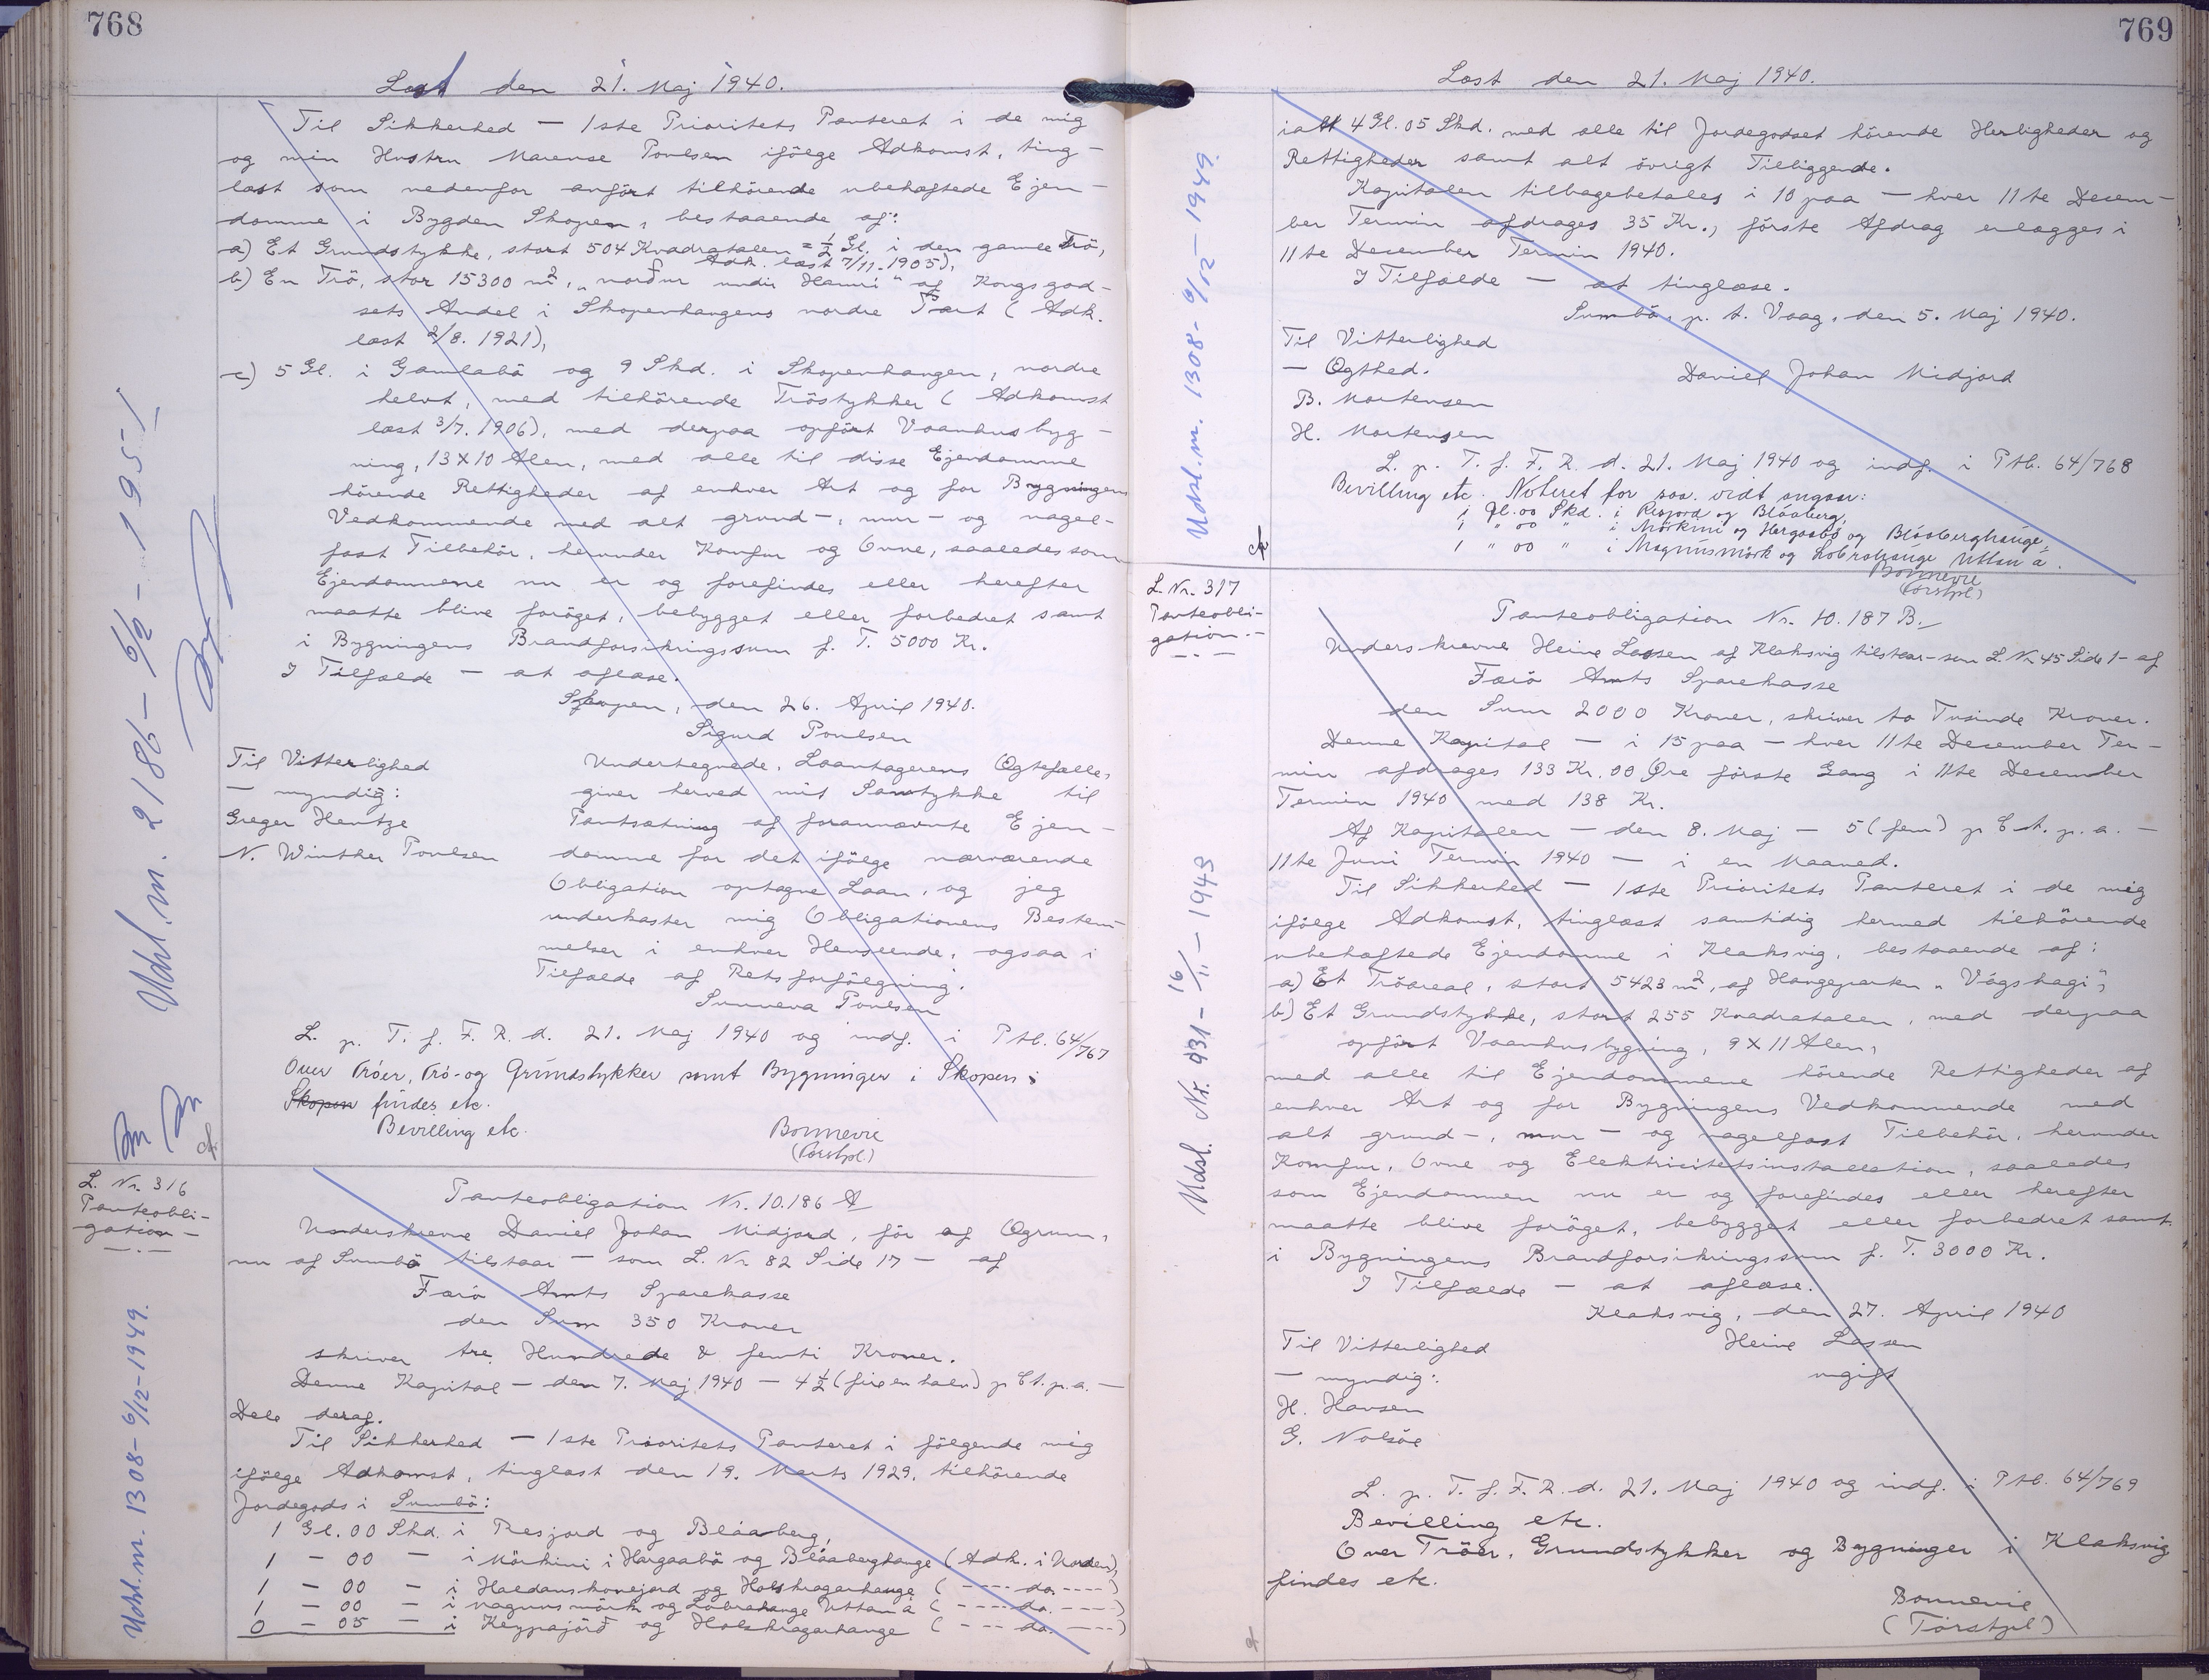 768
Læst den 21. Maj 1940.
Til Sikkerhed — 1ste Prioritets Panteret i de mig
og min Hustru Marense Poulsen ifölge Adkomst, ting-
læst som nedenfor anført tilhörende ubehæftede Ejen-
domme i Bygden Skopen, bestaaende af:
a) Et Grundstykke, stort 504 Kvadratalen = ½ Gl. i den gamle Trö,
Adk. læst 7/11. 1905),
b) En Trö, stor 15300 m², "norður undir Hamri" af Kongsgod-
sets Andel i Skopenhaugens nordre Part (Adk.
læst 2/8. 1921),
c) 5 Gl. i Gamlabö og 9 Skd. i Skopenhaugen, nordre
helvt, med tilhörende Tröstykker (Adkomst
læst 3/7. 1906), med derpaa opført Vaanhusbyg-
ning, 13 X 10 Alen, med alle til disse Ejendomme
hörende Rettigheder af enhver Art og for Bygningens
Vedkommende med alt grund-, mur- og nagel-
fast Tilbehör, herunder Komfur og Ovne, saaledes som
Ejendommene nu er og forefindes eller herefter
maatte blive foröget, bebygget eller forbedret samt
i Bygningens Brandforsikringssum f. T. 5000 Kr.
I Tilfælde — at aflæse.
Skopen, den 26. April 1940.
Sigurd Poulsen
Til Vitterlighed
— myndig:
Greger Hentze
N. Winther Poulsen
Undertegnede, Laantagerens Ægtefælle,
giver herved mit Samtykke til
Pantsætning af forannævnte Ejen-
domme for det ifölge nærværende
Obligation optagne Laan, og jeg
underkaster mig Obligationens Bestem-
melser i enhver Henseende, ogsaa i
Tilfælde af Retsforfölgning.
Sunneva Poulsen
L. p. T. f. F. R. d. 21. Maj 1940 og indf. i Ptb. 64/767
Over Tröer, Trö- og Grundstykker samt Bygninger i Skopen i
Skopen findes etc.
Bevilling etc.
Bonnevie
(Torstpl.)
Udsl. m. 2186 - 6/2 - 1951
L. Nr. 316
Panteobli-
gation -
Udsl. m. 1308 - 6/12 - 1949.
Panteobligation Nr. 10.186 A
Underskrevne Daniel Johan Midjord, för af Ögrum,
nu af Sumbö tilstaar — som L. Nr 82 Side 17 — af
Færö Amts Sparekasse
den Sum 350 Kroner
skriver tre Hundrede & femti Kroner.
Denne Kapital — den 7. Maj 1940 — 4½ (fire en halv) p Ct. p. a. —
Dele deraf.
Til Sikkerhed — 1ste Prioritets Panteret i fölgende mig
ifölge Adkomst, tinglæst den 19. Marts 1929, tilhörende
Jordegods i Sumbö:
1 Gl. 00 Skd. i Resjord og Bláaberg,
1 — 00 — i Mörkini i Hørgaabö og Bláaberghauge (Adk. i Norden),
1 — 00 — i Haldanskonejord og Holskragerhauge ( ---- do. ---- )
1 — 00 — i Magnusmörk og Lobrahauge Uttan á ( ---- do. ---- )
0 — 05 — i Keypajörð og Holskragerhauge ( --- do. ---- )
769
Læst den 21. Maj 1940.
ialt 4 Gl. 05 Skd. med alle til Jordegodset hörende Herligheder og
Rettigheder samt alt övrigt Tilliggende.
Kapitalen tilbagebetales i 10 paa — hver 11te Decem-
ber Termin afdrages 35 Kr., förste Afdrag erlægges i
11te December Termin 1940.
I Tilfælde — at tinglæse.
Sumbö, p. t. Vaag, den 5. Maj 1940.
Til Vitterlighed
— Ægthed.
Daniel Johan Midjord
B. Mortensen
H. Mortensen
L. p. T. f. F. R. d. 21. Maj 1940 og indf. i Ptb. 64/768
Bevilling etc. Noteret for saa vidt angaar:
1 Gl. 00 Skd. i Resjord og Bláaberg,
1 " 00 " i Mörkini og Hørgaabö og Bláaberghauge,
1 " 00 " i Magnusmörk og Lobrahauge Uttan á.
Bonnevie
(Torstpl.)
Udsl. m. 1308 - 6/12 - 1949.
L. Nr. 317
Panteobli-
gation. -
Udsl. Nr. 931 - 16/11 - 1943
Panteobligation Nr. 10.187 B.
Underskrevne Heine Lassen af Klaksvig tilstaar - som L. Nr 45 Side 1 - af
Færö Amts Sparekasse
den Sum 2000 Kroner, skriver to Tusinde Kroner.
Denne Kapital — i 15 paa — hver 11te December Ter-
min afdrages 133 Kr. 00 Øre förste Gang i 11te December
Termin 1940 med 138 Kr.
Af Kapitalen — den 8. Maj — 5 (fem) p Ct. p. a. —
11te Juni Termin 1940 — i en Maaned.
Til Sikkerhed — 1ste Prioritets Panteret i de mig
ifölge Adkomst, tinglæst samtidig hermed tilhörende
ubehæftede Ejendomme i Klaksvig, bestaaende af:
a) Et Tröareal, stort 5423 m², af Haugeparten "Vágshagi",
b) Et Grundstykke, stort 255 Kvadratalen, med derpaa
opført Vaanhusbygning, 9 X 11 Alen,
med alle til Ejendommene hörende Rettigheder af
enhver Art og for Bygningens Vedkommende med
alt grund-, mur- og nagelfast Tilbehör, herunder
Komfur, Ovne og Elektricitetsinstallation, saaledes
som Ejendommen nu er og forefindes eller herefter
maatte blive foröget, bebygget eller forbedret samt
i Bygningens Brandforsikringssum f. T. 3000 Kr.
I Tilfælde — at aflæse.
Klaksvig, den 27. April 1940
Til Vitterlighed
Heine Lassen
— myndig:
ugift
H. Hansen
G. Nolsöe
L. p. T. f. F. R. d. 21. Maj 1940 og indf. i Ptb. 64/769
Bevilling etc.
Over Tröer, Grundstykker og Bygninger i Klaksvig
findes etc.
Bonnevie
(Torstpl)